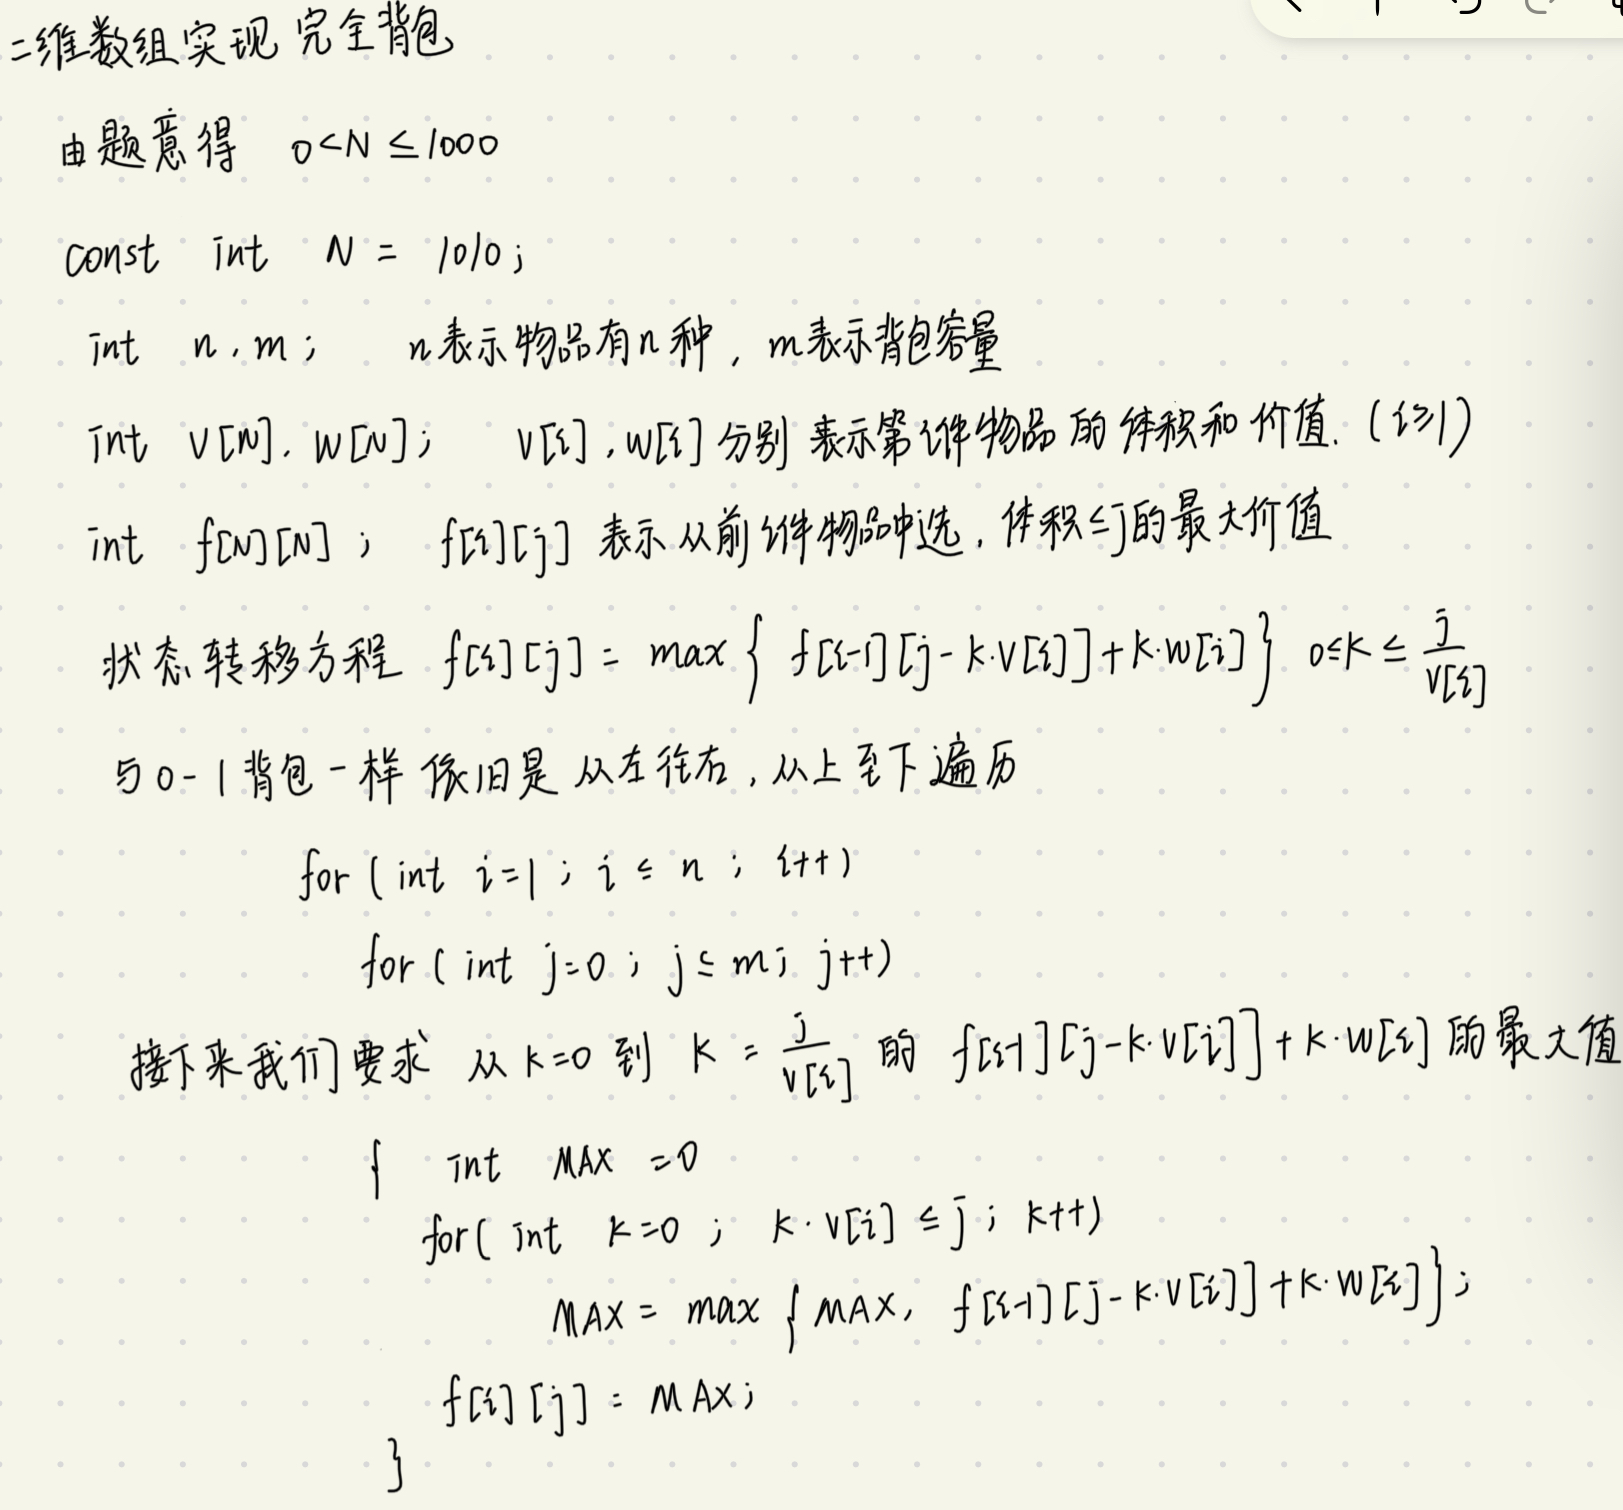 二维数组实现 完全背包
由题意得 0<N≤1000
const int N = 1010;
int n, m; n表示物品有n种, m表示背包容量
int V[N], W[N]; V[i], W[i] 分别 表示第i件物品 的体积和 价值. (i≥1)
int f[N][N]; f[i][j] 表示从前i件物品中选, 体积≤j的最大价值
状态转移方程 f[i][j] = max { f[i-1][j-k·V[i]]+k·W[i] } 0≤k≤ j/V[i]
与0-1背包一样 依旧是 从左往右, 从上至下遍历
for (int i=1; i≤n; i++)
for (int j=0; j≤m; j++)
接下来我们要求 从k=0 到 k = j/V[i] 的 f[i-1][j-k·V[i]]+k·W[i] 的最大值
{ int MAX =0
for( int k=0; k·V[i] ≤ j; k++)
MAX = max { MAX, f[i-1][j-k·V[i]]+k·W[i]};
f[i][j] = MAX;
}